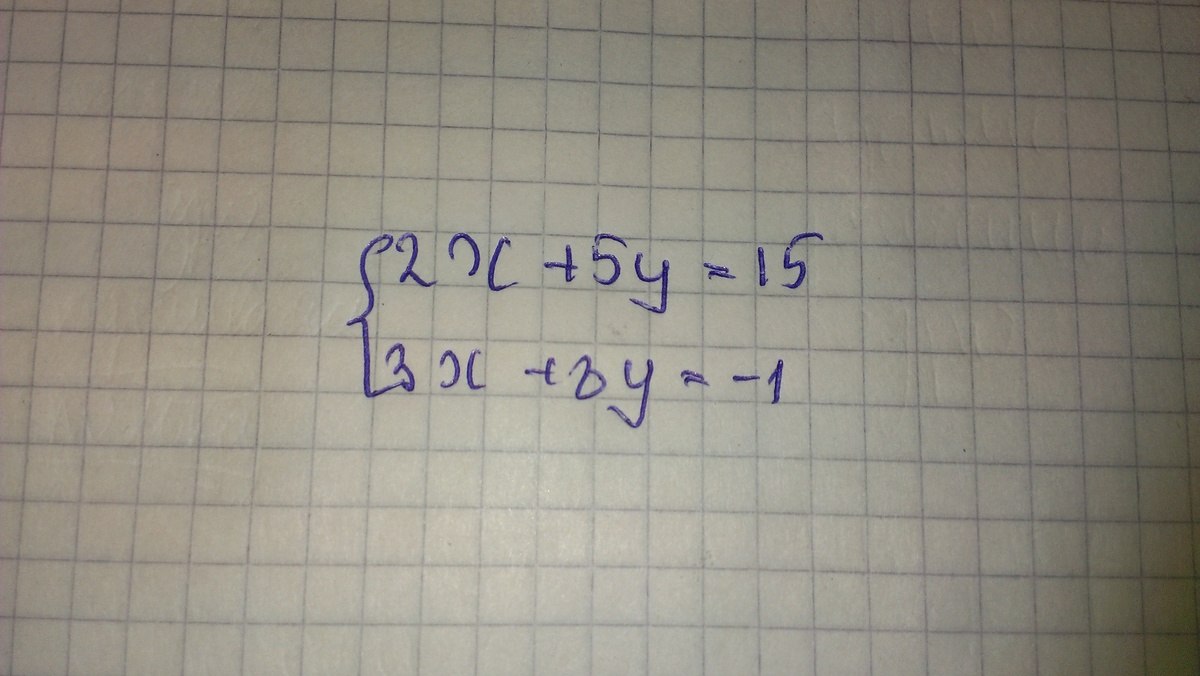 2x + 5y = 15
3x + 8y = -1